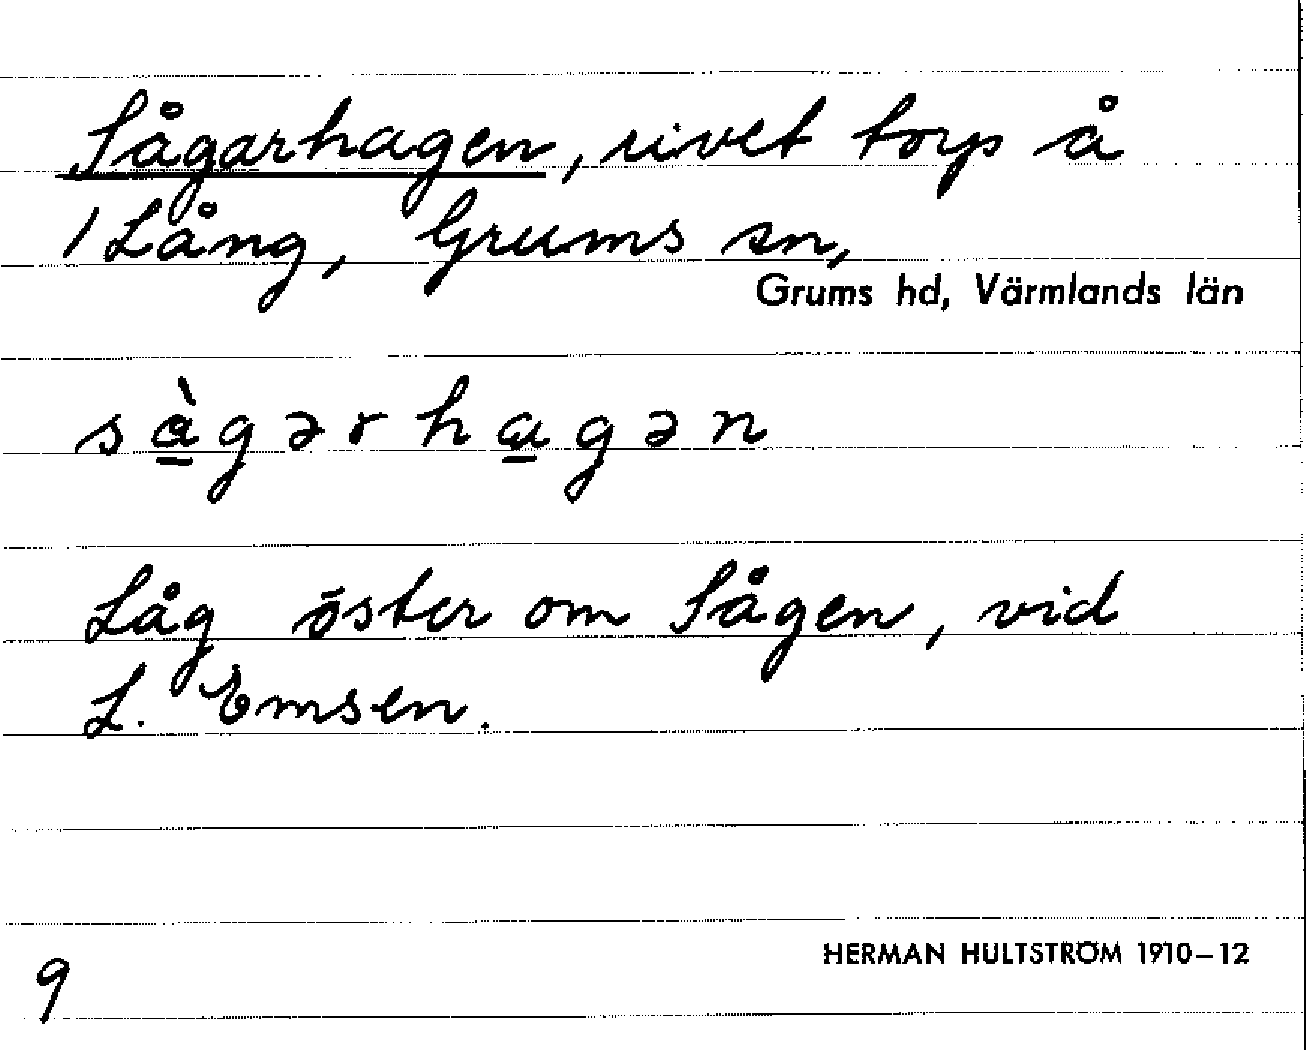 Sågarhagen, rivet torp å
1 Lång, Grums sn,
Grums hd, Värmlands län
så̱̀gərha̱gən
Låg öster om Sågen, vid
L. Emsen.
HERMAN HULTSTRÖM 1910–12
9